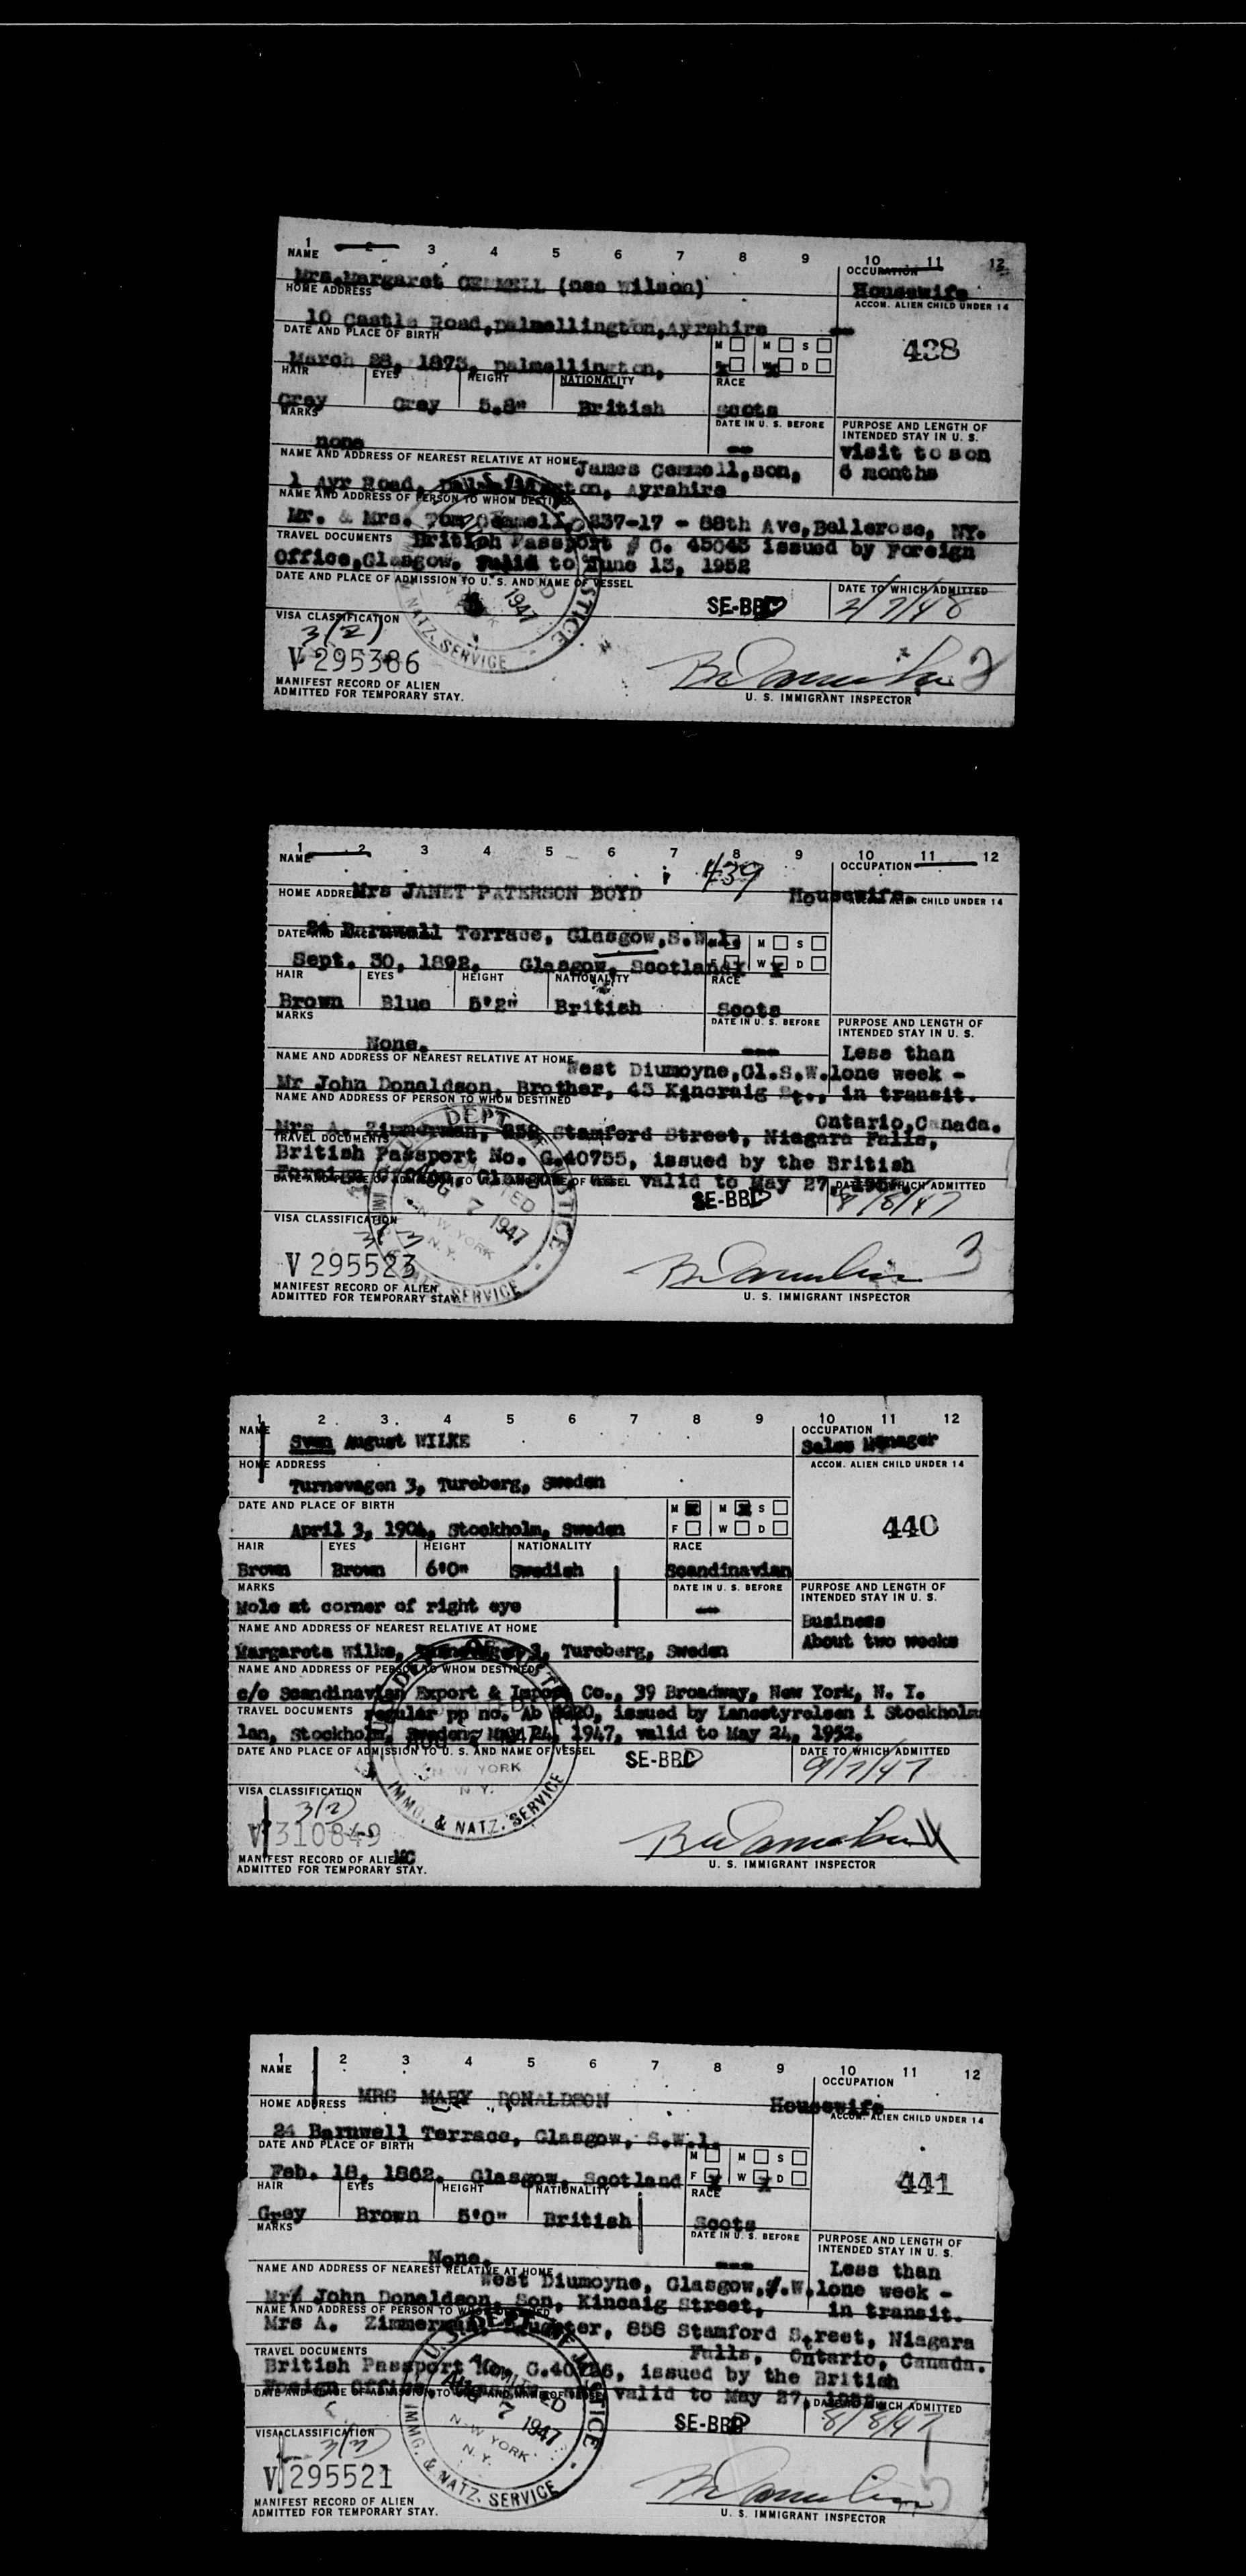 1 2 3 4 5 6 7 8 9 10 11 12
NAME OCCUPATION
Mrs. Margaret GEMMELL (nee Wilson) Housewife
HOME ADDRESS ACCOM. ALIEN CHILD UNDER 14
10 Castle Road, Dalmellington, Ayrshire --
DATE AND PLACE OF BIRTH M M S 438
March 28, 1873, Dalmellington, X X W D
HAIR EYES HEIGHT NATIONALITY RACE
Grey Grey 5.8" British Scots
MARKS DATE IN U. S. BEFORE PURPOSE AND LENGTH OF INTENDED STAY IN U. S.
none -- visit to son
NAME AND ADDRESS OF NEAREST RELATIVE AT HOME James Gemmell, son, 6 months
1 Ayr Road, Dalmellington, Ayrshire
NAME AND ADDRESS OF PERSON TO WHOM DESTINED
Mr. & Mrs. Tom Gemmell, 237-17 - 88th Ave, Bellerose, NY.
TRAVEL DOCUMENTS British Passport # C. 45043 issued by Foreign
Office, Glasgow. Valid to June 13, 1952
DATE AND PLACE OF ADMISSION TO U. S. AND NAME OF VESSEL DATE TO WHICH ADMITTED
1947 SE-BBD 2/7/48
VISA CLASSIFICATION
3(2)
V 295386
NATZ. SERVICE
MANIFEST RECORD OF ALIEN
ADMITTED FOR TEMPORARY STAY. U. S. IMMIGRANT INSPECTOR
1 2 3 4 5 6 7 8 9 10 11 12
NAME 439 OCCUPATION
HOME ADDRE Mrs JANET PATERSON BOYD Housewife. CHILD UNDER 14
24 Barnwell Terrace, Glasgow, S.W.1. M S
DATE AND
Sept. 30, 1892. Glasgow, Scotland X W X D
HAIR EYES HEIGHT NATIONALITY RACE
Brown Blue 5'2" British Scots
MARKS DATE IN U. S. BEFORE PURPOSE AND LENGTH OF INTENDED STAY IN U. S.
None. --- Less than
NAME AND ADDRESS OF NEAREST RELATIVE AT HOME West Diumoyne, Gl.S.W.1 one week -
Mr John Donaldson, Brother, 45 Kincraig St., in transit.
NAME AND ADDRESS OF PERSON TO WHOM DESTINED
Ontario, Canada.
Mrs A. Zimmerman, 858 Stamford Street, Niagara Falls,
TRAVEL DOCUMENTS
British Passport No. C.40755, issued by the British
Foreign Office, Glasgow valid to May 27, 1952. WHICH ADMITTED
AUG 7 1947 SE-BBD 8/8/47
VISA CLASSIFICATION
NEW YORK N. Y.
V 295523
MANIFEST RECORD OF ALIEN
ADMITTED FOR TEMPORARY STAY. U. S. IMMIGRANT INSPECTOR
NATZ. SERVICE
1 2 3 4 5 6 7 8 9 10 11 12
NAME OCCUPATION
Sven August WILKE Sales Manager
HOME ADDRESS ACCOM. ALIEN CHILD UNDER 14
Turnevagen 3, Tureberg, Sweden
DATE AND PLACE OF BIRTH M X M X S 440
April 3, 1904, Stockholm, Sweden F W D
HAIR EYES HEIGHT NATIONALITY RACE
Brown Brown 6'0" Swedish Scandinavian
MARKS DATE IN U. S. BEFORE PURPOSE AND LENGTH OF INTENDED STAY IN U. S.
Mole at corner of right eye -- Business
NAME AND ADDRESS OF NEAREST RELATIVE AT HOME About two weeks
Margareta Wilke, Turnevagen 3, Tureberg, Sweden
NAME AND ADDRESS OF PERSON TO WHOM DESTINED
c/o Scandinavian Export & Import Co., 39 Broadway, New York, N. Y.
TRAVEL DOCUMENTS regular pp no. Ab issued by Lansstyrelsen i Stockholms
lan, Stockholm, Sweden, May 24, 1947, valid to May 24, 1952.
DATE AND PLACE OF ADMISSION TO U. S. AND NAME OF VESSEL DATE TO WHICH ADMITTED
SE-BBD 9/7/47
NEW YORK N. Y.
VISA CLASSIFICATION
3(2)
V 310849
IMMG. & NATZ. SERVICE
MANIFEST RECORD OF ALIEN
ADMITTED FOR TEMPORARY STAY. U. S. IMMIGRANT INSPECTOR
1 2 3 4 5 6 7 8 9 10 11 12
NAME OCCUPATION
HOME ADDRESS MRS MARY DONALDSON Housewife
ACCOM. ALIEN CHILD UNDER 14
24 Barnwell Terrace, Glasgow, S.W.1.
DATE AND PLACE OF BIRTH M M S 441
Feb. 18, 1862. Glasgow, Scotland F X W X D
HAIR EYES HEIGHT NATIONALITY RACE
Grey Brown 5'0" British Scots
MARKS DATE IN U. S. BEFORE PURPOSE AND LENGTH OF INTENDED STAY IN U. S.
None. --- Less than
NAME AND ADDRESS OF NEAREST RELATIVE AT HOME West Diumoyne, Glasgow, S.W.1 one week -
Mr John Donaldson, Son, Kincaig Street, in transit.
NAME AND ADDRESS OF PERSON TO WHOM DESTINED
Mrs A. Zimmerman, Daughter, 858 Stamford Street, Niagara
Falls, Ontario, Canada.
TRAVEL DOCUMENTS
British Passport No. C.40756, issued by the British
Foreign Office, Glasgow valid to May 27, 1952. WHICH ADMITTED
ADMITTED AUG 7 1947 SE-BBD 8/8/47
VISA CLASSIFICATION
3(3)
NEW YORK N. Y.
V 295521
IMMG. & NATZ. SERVICE
MANIFEST RECORD OF ALIEN
ADMITTED FOR TEMPORARY STAY. U. S. IMMIGRANT INSPECTOR